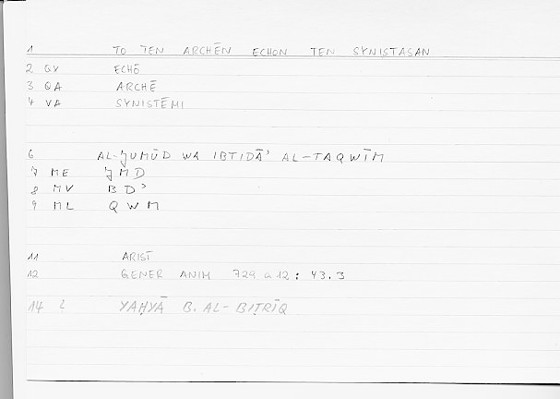 1 TO TEN ARCHĒN ECHON TEN SYNISTASAN
2 GV ECHĒ
3 QA ARCHĒ
4 VA SYNISTĒMI
6 AL-ǦUMŪD WA IBTIDĀʾ AL-TAQWĪM
7 ME ǦMD
8 MV BDʾ
9 ML QWM
11 ARIST
12 GENER ANIM 729 a 12 : 43.3
14 L YAḤYĀ B. AL-BIṬRĪQ